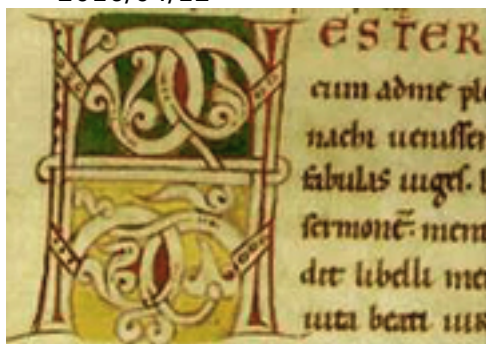 HESTER
cum adme ple
nachi uenissen
fabulas iuges.
sermonē: ment
dit libelli me
uita beati uir